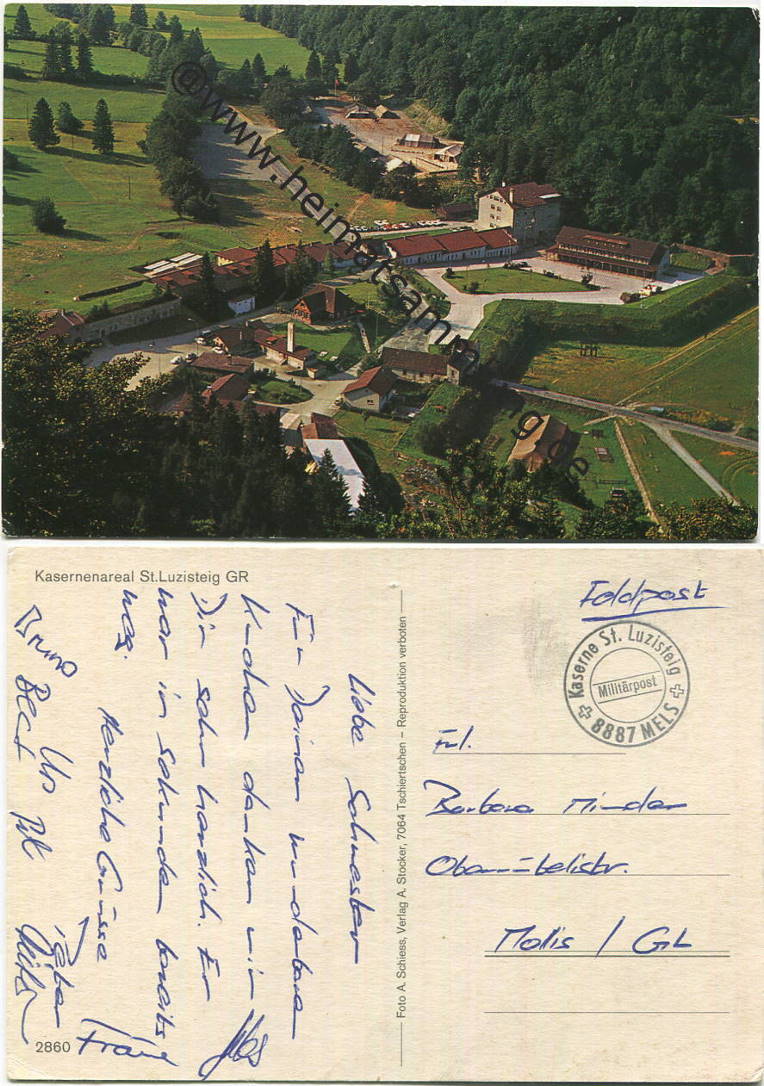 @www.heimatsammlung.de
Kasernenareal St.Luzisteig GR
Liebe Schwester
Für Deinen wunderbaren
Kuchen danken wir
Dir sehr herzlich. Er
war in Sekunden bereits
weg.
Herzliche Grüsse
Peter
Urs
Bruno
Beat
2860
Foto A. Schiess, Verlag A. Stocker, 7064 Tschiertschen – Reproduktion verboten
Feldpost
Kaserne St. Luzisteig
Militärpost
8887 MELS
Frl.
Barbara Minder
Molis / GL